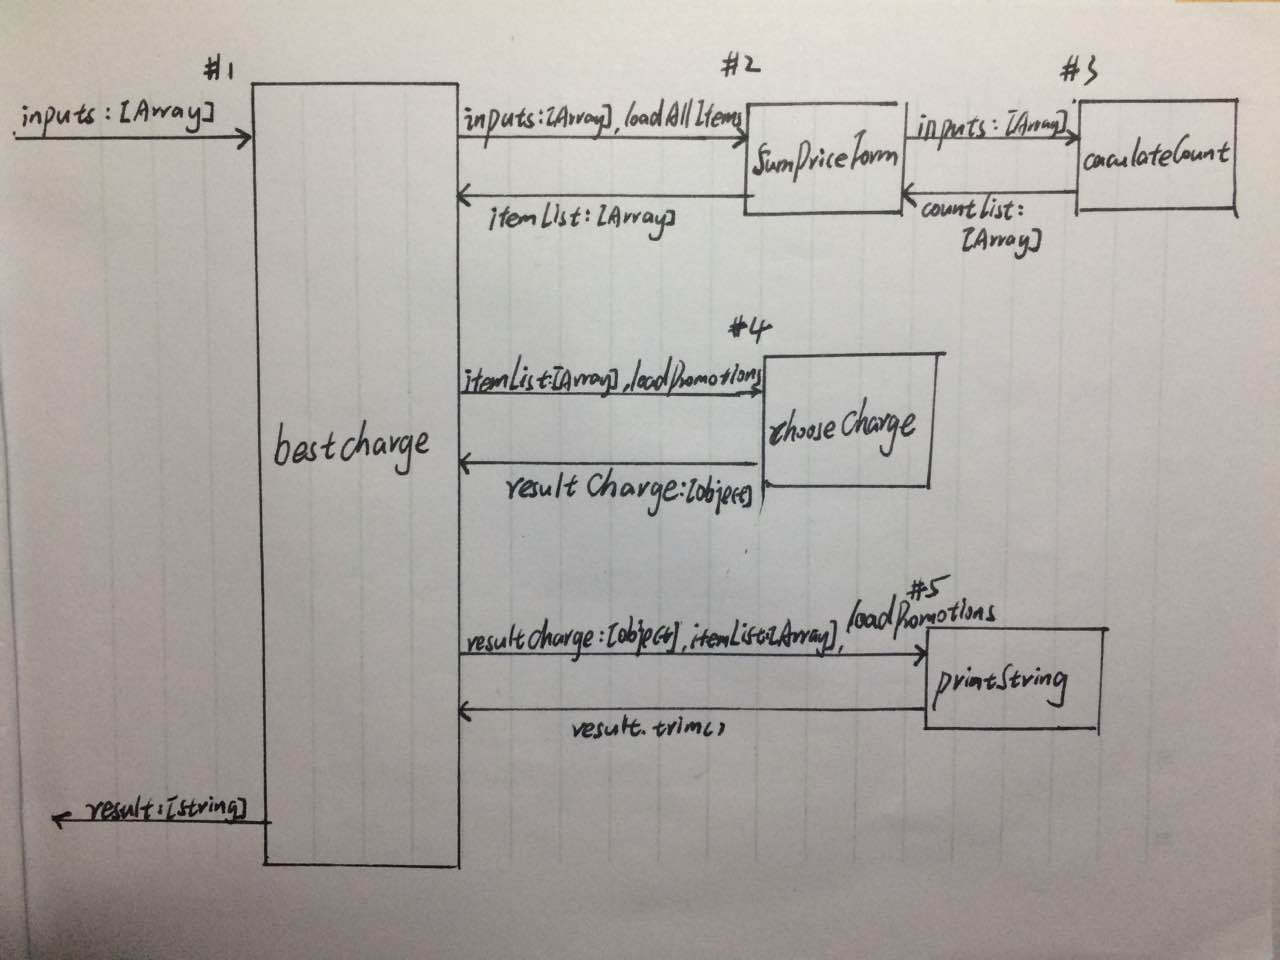 #1
inputs:[Array]
#2
inputs:[Array],loadAllItems
sumpriceform
itemList:[Array]
#3
inputs:[Array]
caculateCount
countList:
[Array]
#4
itemList:[Array],loadPromotions
chooseCharge
resultCharge:[object]
bestcharge
#5
resultCharge:[object],itemList:[Array],
loadPromotions
printString
result.trim()
result:[string]